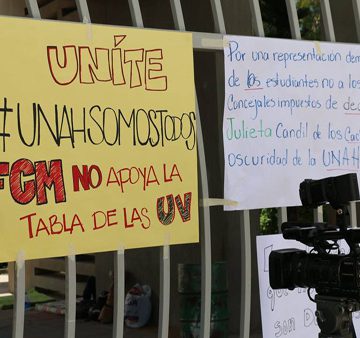 UNÍTE
#UNAHSOMOSTODOS
FCM NO APOYA LA
TABLA DE LAS UV
Por una representación dem
de los estudiantes no a los
Concejales impuestos de de
Julieta Candil de los Ca
oscuridad de la UNAH
que
son